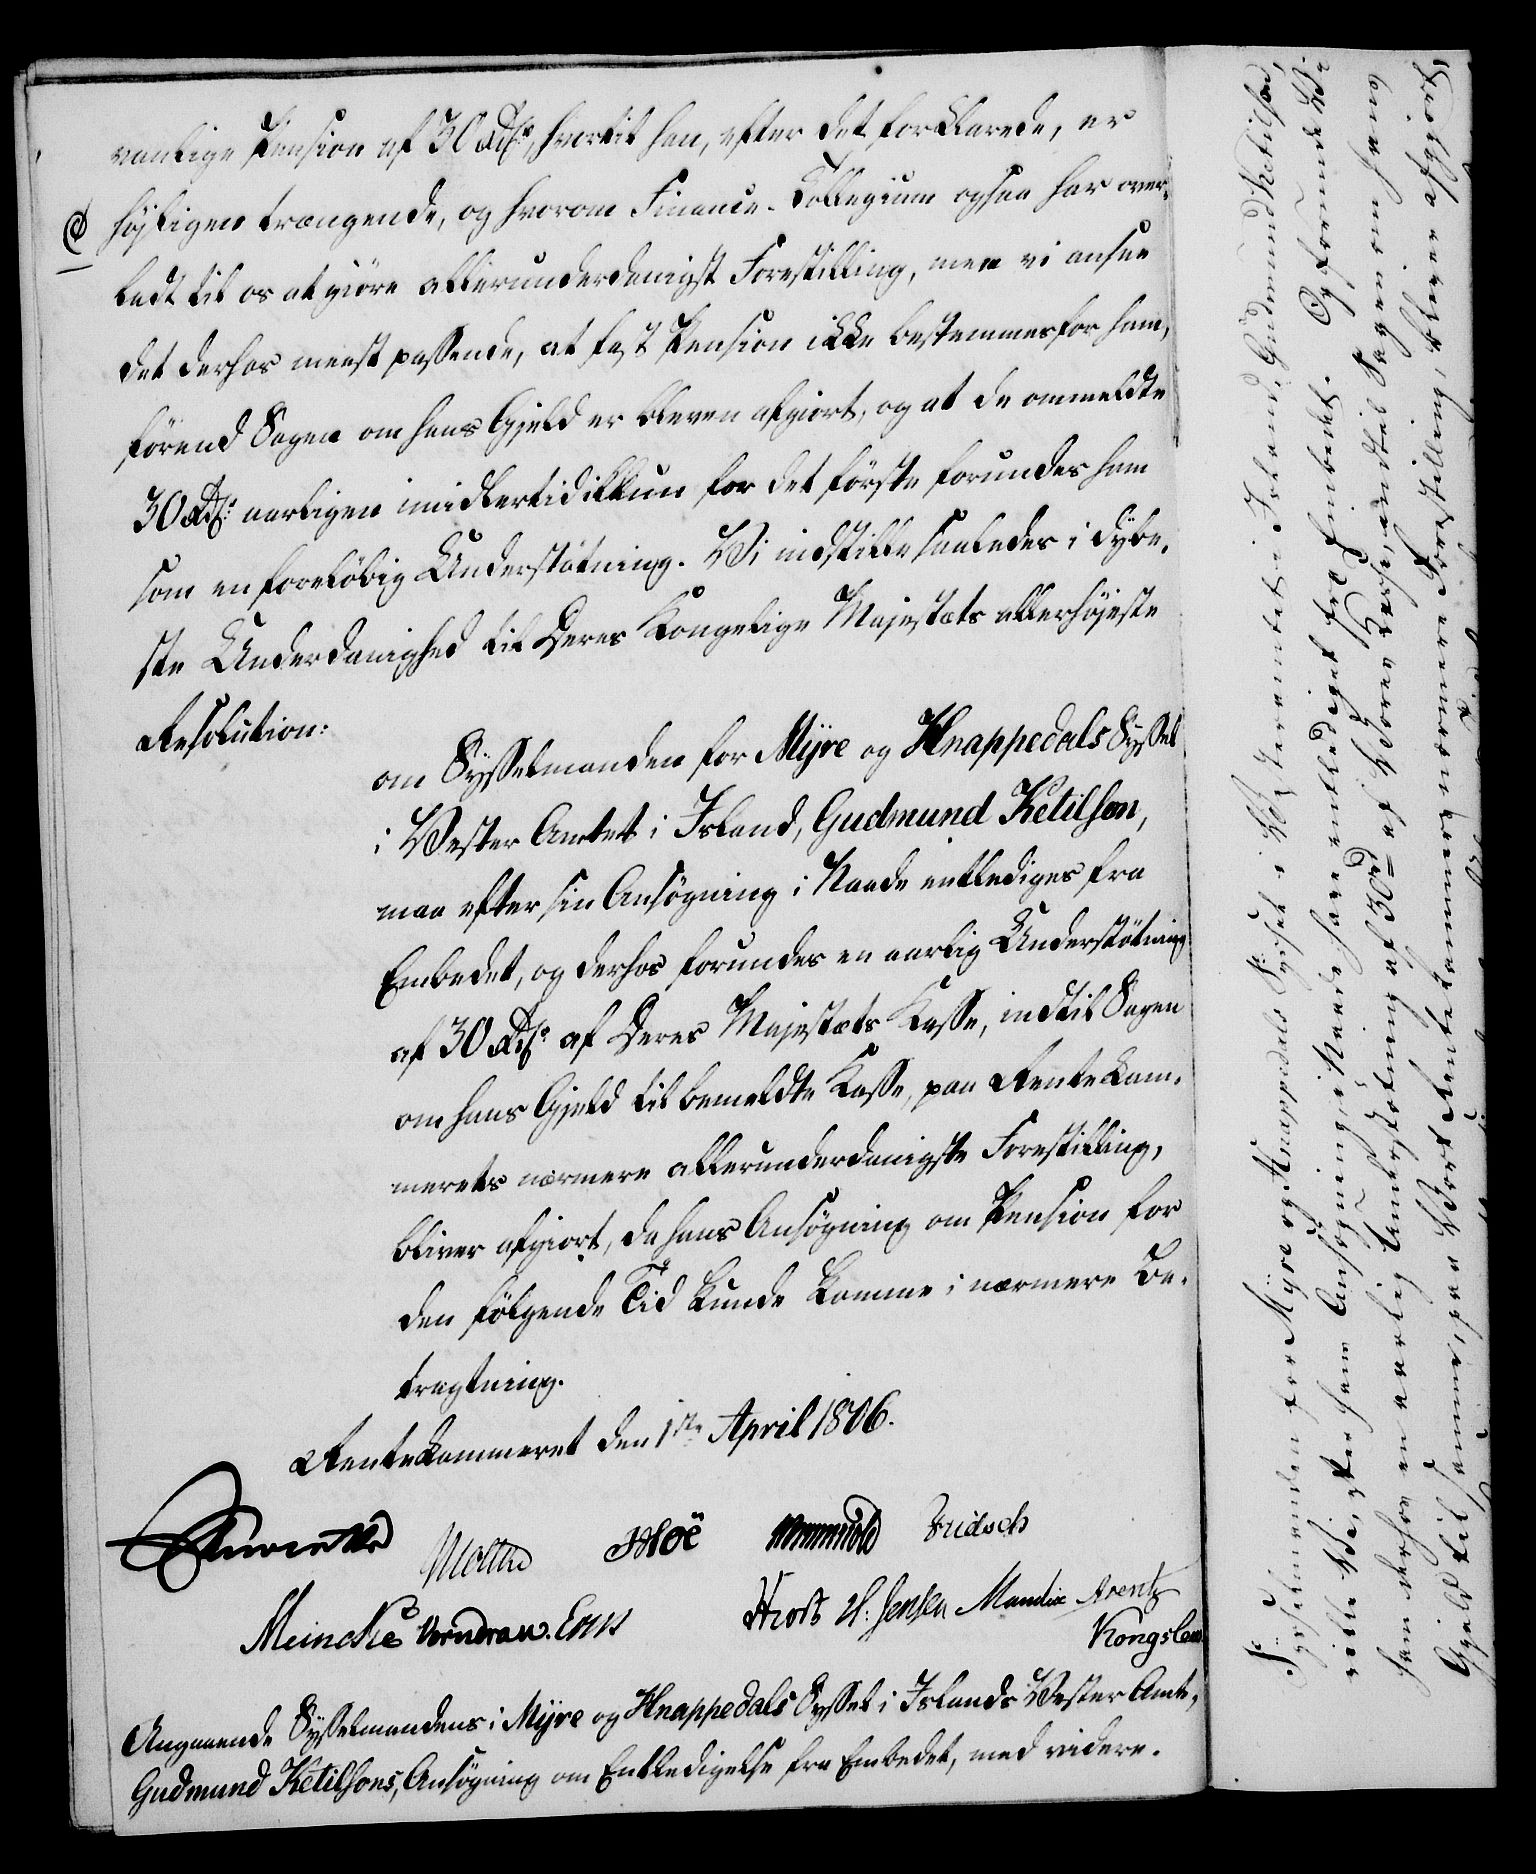 vanlige Pension af 30 Rdr, hvortil han, efter det forklarede, er
højligen trængende, og hvorom Finance-Collegium ogsaa har over-
ladt til os at giøre allerunderdanigst Forestilling, men vi ansee
det derhos meest passende, at fast Pension ikke bestemmes for ham,
førend Sagen om hans Gjeld er bleven afgiort, og at de ommeldte
30 Rdr: aarligen imidlertid ikkun for det første forundes ham
som en foreløbig Understøtning. Vi indstille saaledes i dybe-
ste Underdanighed til Deres Kongelige Majestæts allerhøjeste
Resolution:
om Sysselmanden for Myre og Hnappedals Syssel
i Vester Amtet i Island, Gudmund Ketilson,
maa efter sin Ansøgning i Naade entlediges fra
Embedet, og derhos forundes en aarlig Understøtning
af 30 Rdr. af Deres Majestæts Kasse, indtil Sagen
om hans Gjeld til bemeldte Kasse, paa Rentekam-
merets nærmere allerunderdanigste Forestilling,
bliver afgiort, da hans Ansøgning om Pension for
den følgende Tid kunde komme i nærmere Be-
tragtning.
Rentekammeret den 1ste April 1806.
Moltke
Meincke Vorndran.
H. Jensen Mandix Arentz
Angaaende Sysselmandens i Myre og Hnappedals Syssel i Islands Vester Amt,
Gudmund Ketilsons, Ansøgning om Entledigelse fra Embedet, med videre.
Sysselmanden for Myre og Hnappedals Syssel i Vesteramtet i Island, Gudmund Ketilson,
ville Vi, efter hans Ansøgning, i Naade have entlediget fra Embedet. Og forunde Vi
ham derhos en aarlig Understøtning af 30 rd af Vores Kasse, indtil Sagen om hans
Gjeld til samme, paa Vort Rentekammers nærmere Forestilling, bliver afgjort,